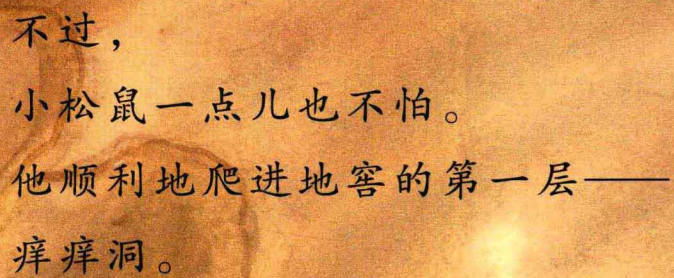 不过，
小松鼠一点儿也不怕。
他顺利地爬进地窖的第一层——
痒痒洞。